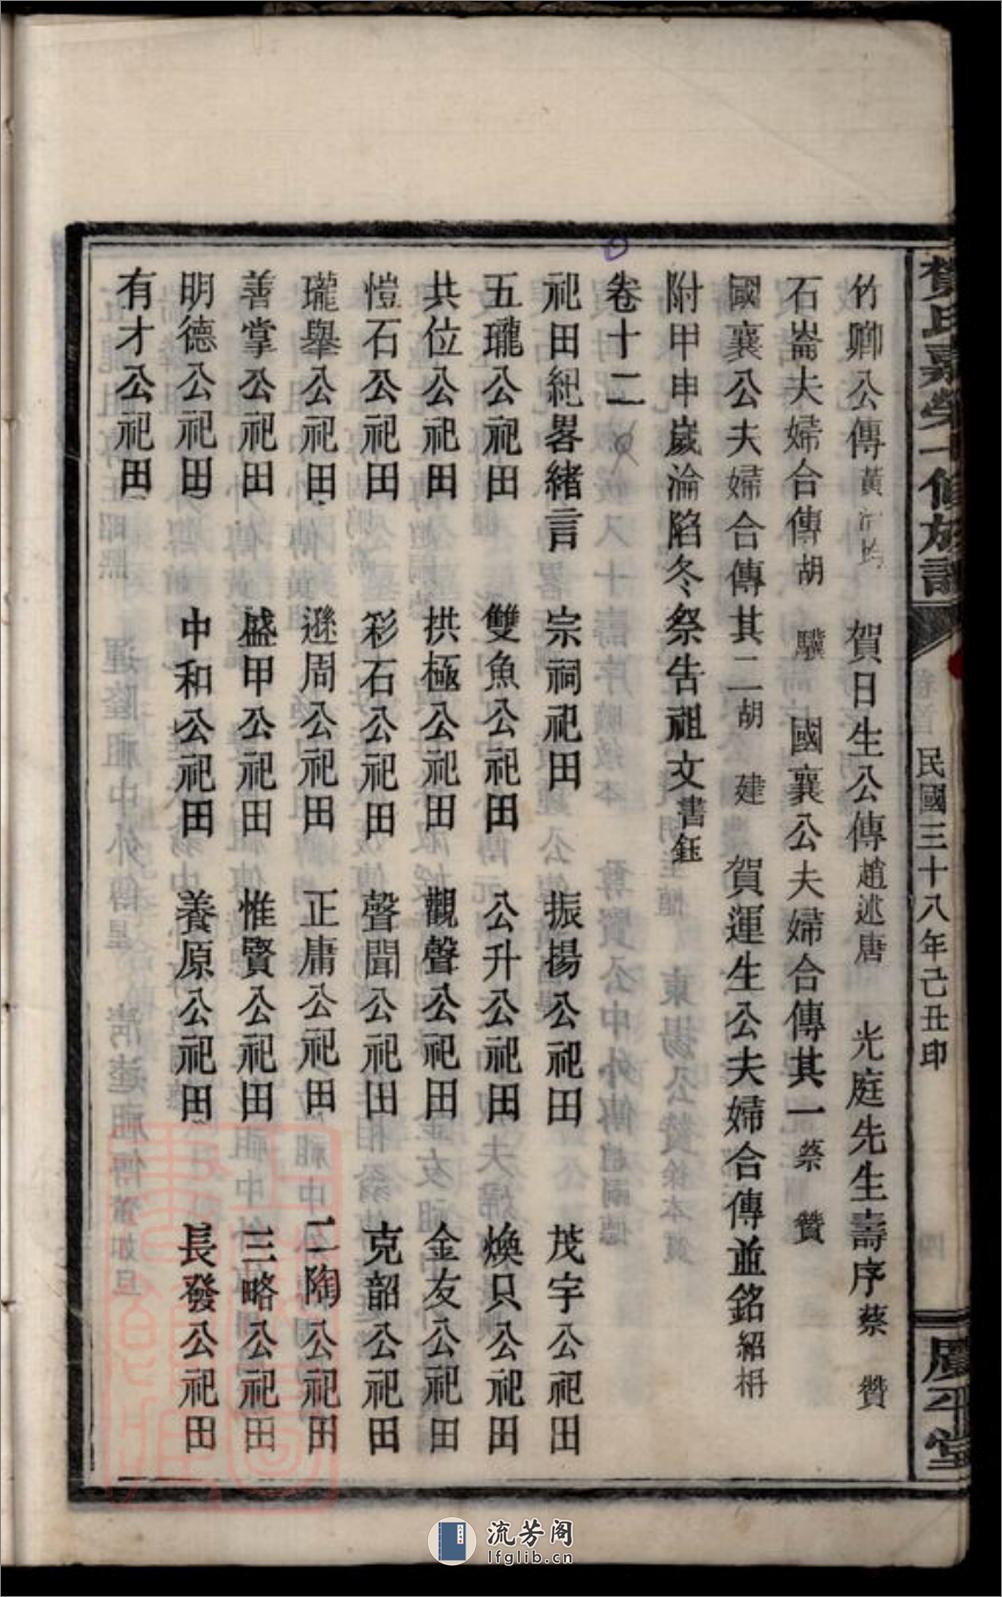 賀氏嘉榮十修族譜 民國三十八年己丑印
竹卿公傳黃 賀日生公傳趙述唐 光庭先生壽序蔡贊
石崙夫婦合傳胡驥 國襄公夫婦合傳其一蔡贊
國襄公夫婦合傳其二胡建 賀運生公夫婦合傳並銘紹枬
附甲申歲淪陷冬祭告祖文書鈺
卷十二
祀田紀畧緒言 宗祠祀田 振揚公祀田 茂宇公祀田
五瓏公祀田 雙魚公祀田 公升公祀田 煥只公祀田
共位公祀田 拱極公祀田 觀聲公祀田 金友公祀田
愷石公祀田 彩石公祀田 聲聞公祀田 克韶公祀田
瓏舉公祀田 遜周公祀田 正庸公祀田 二陶公祀田
善掌公祀田 盛甲公祀田 惟賢公祀田 三略公祀田
明德公祀田 中和公祀田 養原公祀田 長發公祀田
有才公祀田
流芳阁
lfglib.cn